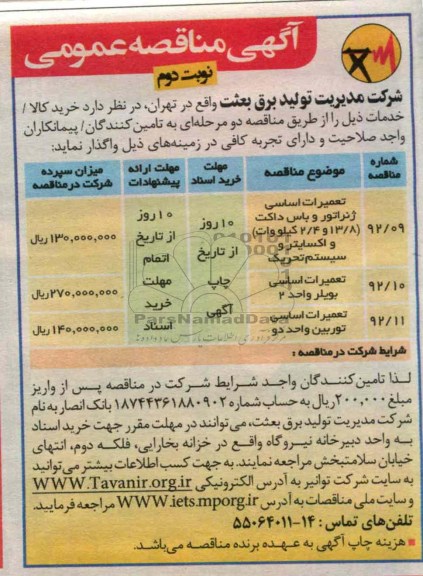 آگهی مناقصه عمومی
نوبت دوم
شرکت مدیریت تولید برق بعثت واقع در تهران، در نظر دارد خرید کالا/
خدمات ذیل را از طریق مناقصه دو مرحله‌ای به تامین کنندگان/ پیمانکاران
واجد صلاحیت و دارای تجربه کافی در زمینه‌های ذیل واگذار نماید:
شماره مناقصه
موضوع مناقصه
مهلت خرید اسناد
مهلت ارائه پیشنهادات
میزان سپرده شرکت در مناقصه
۹۲/۰۹
تعمیرات اساسی
ژنراتور و باس داکت
(۱۳/۸ و ۲/۴ کیلو وات)
و اکسایتر و
سیستم تحریک
۱۳۰,۰۰۰,۰۰۰ ریال
۹۲/۱۰
تعمیرات اساسی
بویلر واحد ۲
۲۷۰,۰۰۰,۰۰۰ ریال
۹۲/۱۱
تعمیرات اساسی
توربین واحد دو
۱۴۰,۰۰۰,۰۰۰ ریال
۱۰ روز
از تاریخ
چاپ
آگهی
۱۰ روز
از تاریخ
اتمام
مهلت
خرید
اسناد
ParsNamadData
شرایط شرکت در مناقصه :
لذا تامین کنندگان واجد شرایط شرکت در مناقصه پس از واریز
مبلغ ۲۰۰,۰۰۰ ریال به حساب شماره ۱۸۷۴۴۳۶۱۸۸۰۹۰۲ بانک انصار به نام
شرکت مدیریت تولید برق بعثت، می‌توانند در مهلت مقرر جهت خرید اسناد
به واحد دبیرخانه نیروگاه واقع در خزانه بخارایی، فلکه دوم، انتهای
خیابان سلامتبخش مراجعه نمایند. به جهت کسب اطلاعات بیشتر می‌توانید
به سایت شرکت توانیر به آدرس الکترونیکی WWW.Tavanir.org.ir
وسایت ملی مناقصات به آدرس WWW.iets.mporg.ir مراجعه فرمایید.
تلفن‌های تماس : ۱۴-۵۵۰۶۴۰۱۱
هزینه چاپ آگهی به عهده برنده مناقصه می‌باشد.